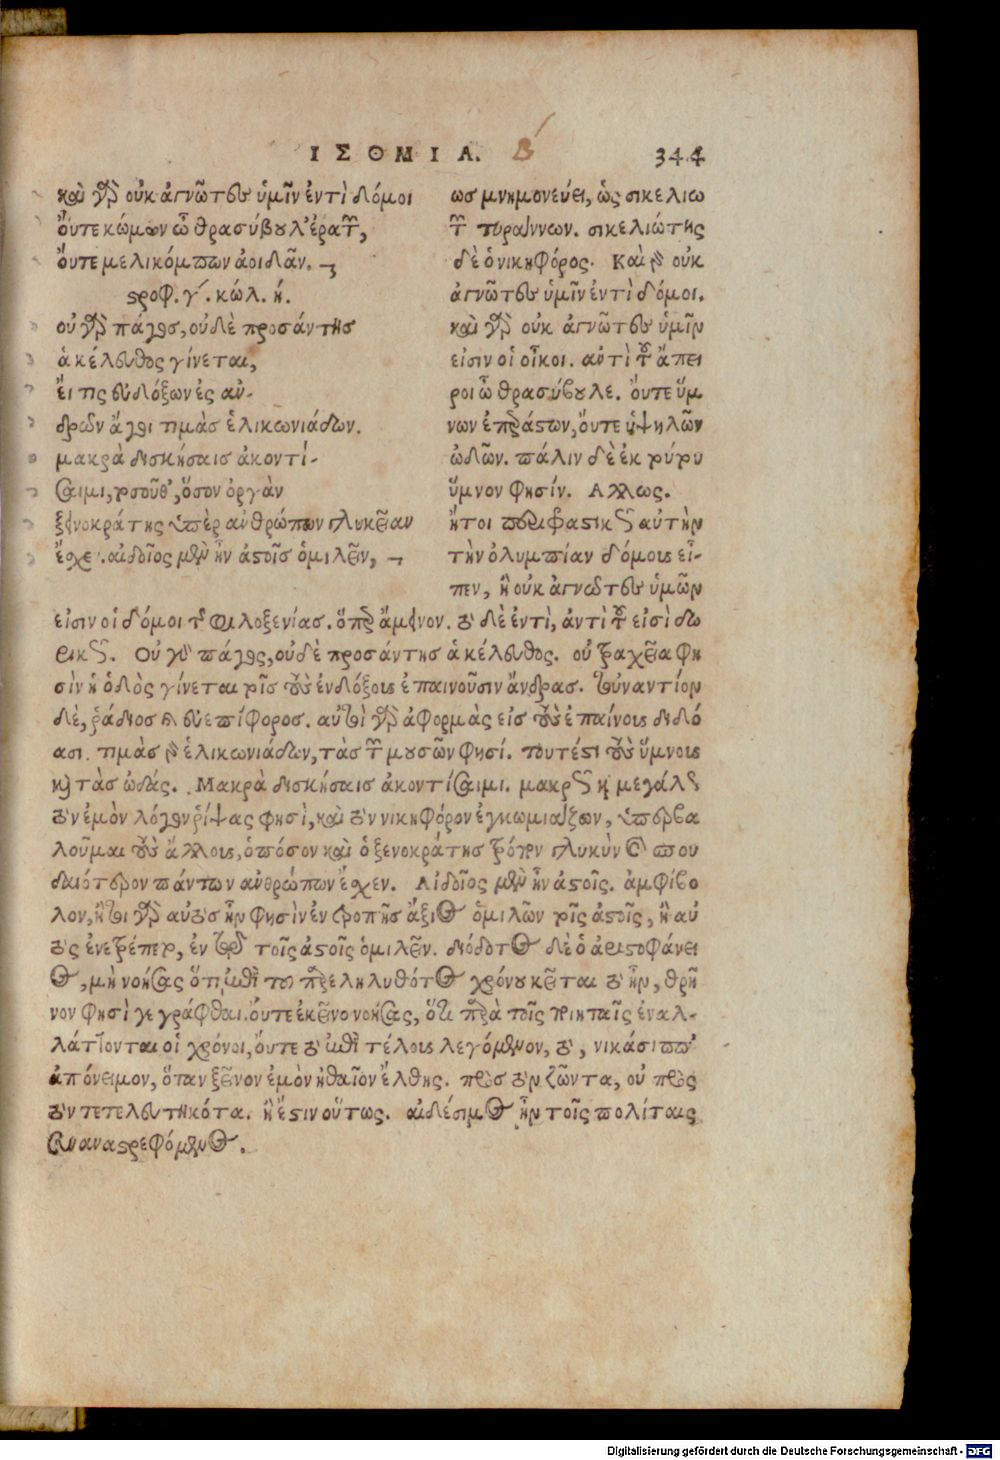 ΙΣΘΜΙΑ. Β 344
καὶ γὰρ οὐκ ἀγνῶτες ὑμῖν ἐντὶ δόμοι
οὔτε κώμων ὦ θρασύβουλ' ἐρατῶν,
οὔτε μελικόμπων ἀοιδᾶν.
στροφ. γ´. κώλ. ή.
οὐ γὰρ πάγος, οὐδὲ προσάντης
ἁ κέλευθος γίνεται,
εἴ τις εὐδόξων ἐς ἀν-
δρῶν ἄγοι τιμὰς ἑλικωνιάδων.
μακρὰ δισκήσαις ἀκοντί-
σαιμι, τοσοῦθ', ὅσον ὀργὰν
ξεινοκράτης ὑπὲρ ἀνθρώπων γλυκεῖαν
ἔσχε. αἰδοῖος μὲν ἦν ἀστοῖς ὁμιλεῖν,
ως μνημονεύει, ὡς σικελιω
τῶν τυράννων. σικελιώτης
δὲ ὁ νικηφόρος. Καὶ γὰρ οὐκ
ἀγνῶτες ὑμῖν ἐντὶ δόμοι.
καὶ γὰρ οὐκ ἀγνῶτες ὑμῖν
εἰσιν οἱ οἶκοι. ἀντὶ τοῦ ἄπει
ροι ὦ θρασύβουλε. οὔτε ὕμ
νων ἐπεράστων, οὔτε ὑψηλῶν
ὠδῶν. πάλιν δὲ ἐκ τούτου
ὕμνον φησίν. Αλλως.
ἤτοι περιφαστικῶς αὐτὴν
τὴν ὀλυμπίαν δόμους εἶ-
πεν, ἢ οὐκ ἀγνῶτες ὑμῶν
εἰσιν οἱ δόμοι τῆς φιλοξενίας. ὅπερ ἄμεινον. τὸ δὲ ἐντὶ, ἀντὶ τοῦ εἰσὶ δω
ρικῶς. Οὐ γὰρ πάγος, οὐδὲ προσάντης ἁ κέλευθος. οὐ τραχεῖα φη
σὶν ἡ ὁδὸς γίνεται τοῖς τοὺς ἐνδόξους ἐπαινοῦσιν ἄνδρας. τοὐναντίον
δὲ, ῥάδιος καὶ εὐεπίφορος. αὐτοὶ γὰρ ἀφορμὰς εἰς τοὺς ἐπαίνους διδό
ασι. τιμὰς γὰρ ἑλικωνιάδων, τὰς τῶν μουσῶν φησί. τουτέστι τοὺς ὕμνους
καὶ τὰς ὠδάς. Μακρὰ δισκήσαις ἀκοντίσαιμι. μακρῶς καὶ μεγάλως
τὸν ἐμὸν λόγον ῥίψας φησὶ, καὶ τὸν νικηφόρον ἐγκωμιάζων, ὑπερβα
λοῦμαι τοὺς ἄλλους, ὁπόσον καὶ ὁ ξενοκράτης τρόπον γλυκὺν καὶ σπου
δαιότερον πάντων ἀνθρώπων ἔσχεν. Αἰδοῖος μὲν ἦν ἀστοῖς. ἀμφίβο
λον, ἤτοι γὰρ αὐτὸς ἦν φησὶν ἐντροπῆς ἄξιος ὁμιλῶν τοῖς ἀστοῖς, ἢ αὐ
τὸς ἐνετρέπετο, ἐν τῷ τοῖς ἀστοῖς ὁμιλεῖν. δόδοτος δὲ ὁ ἀριστοφάνει
ος, μὴ νοήσας ὅτι ἐπὶ τοῦ παρεληλυθότος χρόνου κεῖται τὸ ἦν, θρῆ
νον φησὶ γεγράφθαι. οὔτε ἐκεῖνο νοήσας, ὅτι παρὰ τοῖς ποιηταῖς ἐναλ-
λάττονται οἱ χρόνοι, οὔτε τὸ ἐπὶ τέλους λεγόμενον, τὸ, νικάσιππ'
ἀπόνειμον, ὅταν ξεῖνον ἐμὸν ἠθαῖον ἔλθης. πρὸς τὸν ζῶντα, οὐ πρὸς
τὸν τετελευτηκότα. ἢ ἔστιν οὕτως. αἰδέσιμος ἦν τοῖς πολίταις
συναναστρεφόμενος.
Digitalisierung gefördert durch die Deutsche Forschungsgemeinschaft - DFG